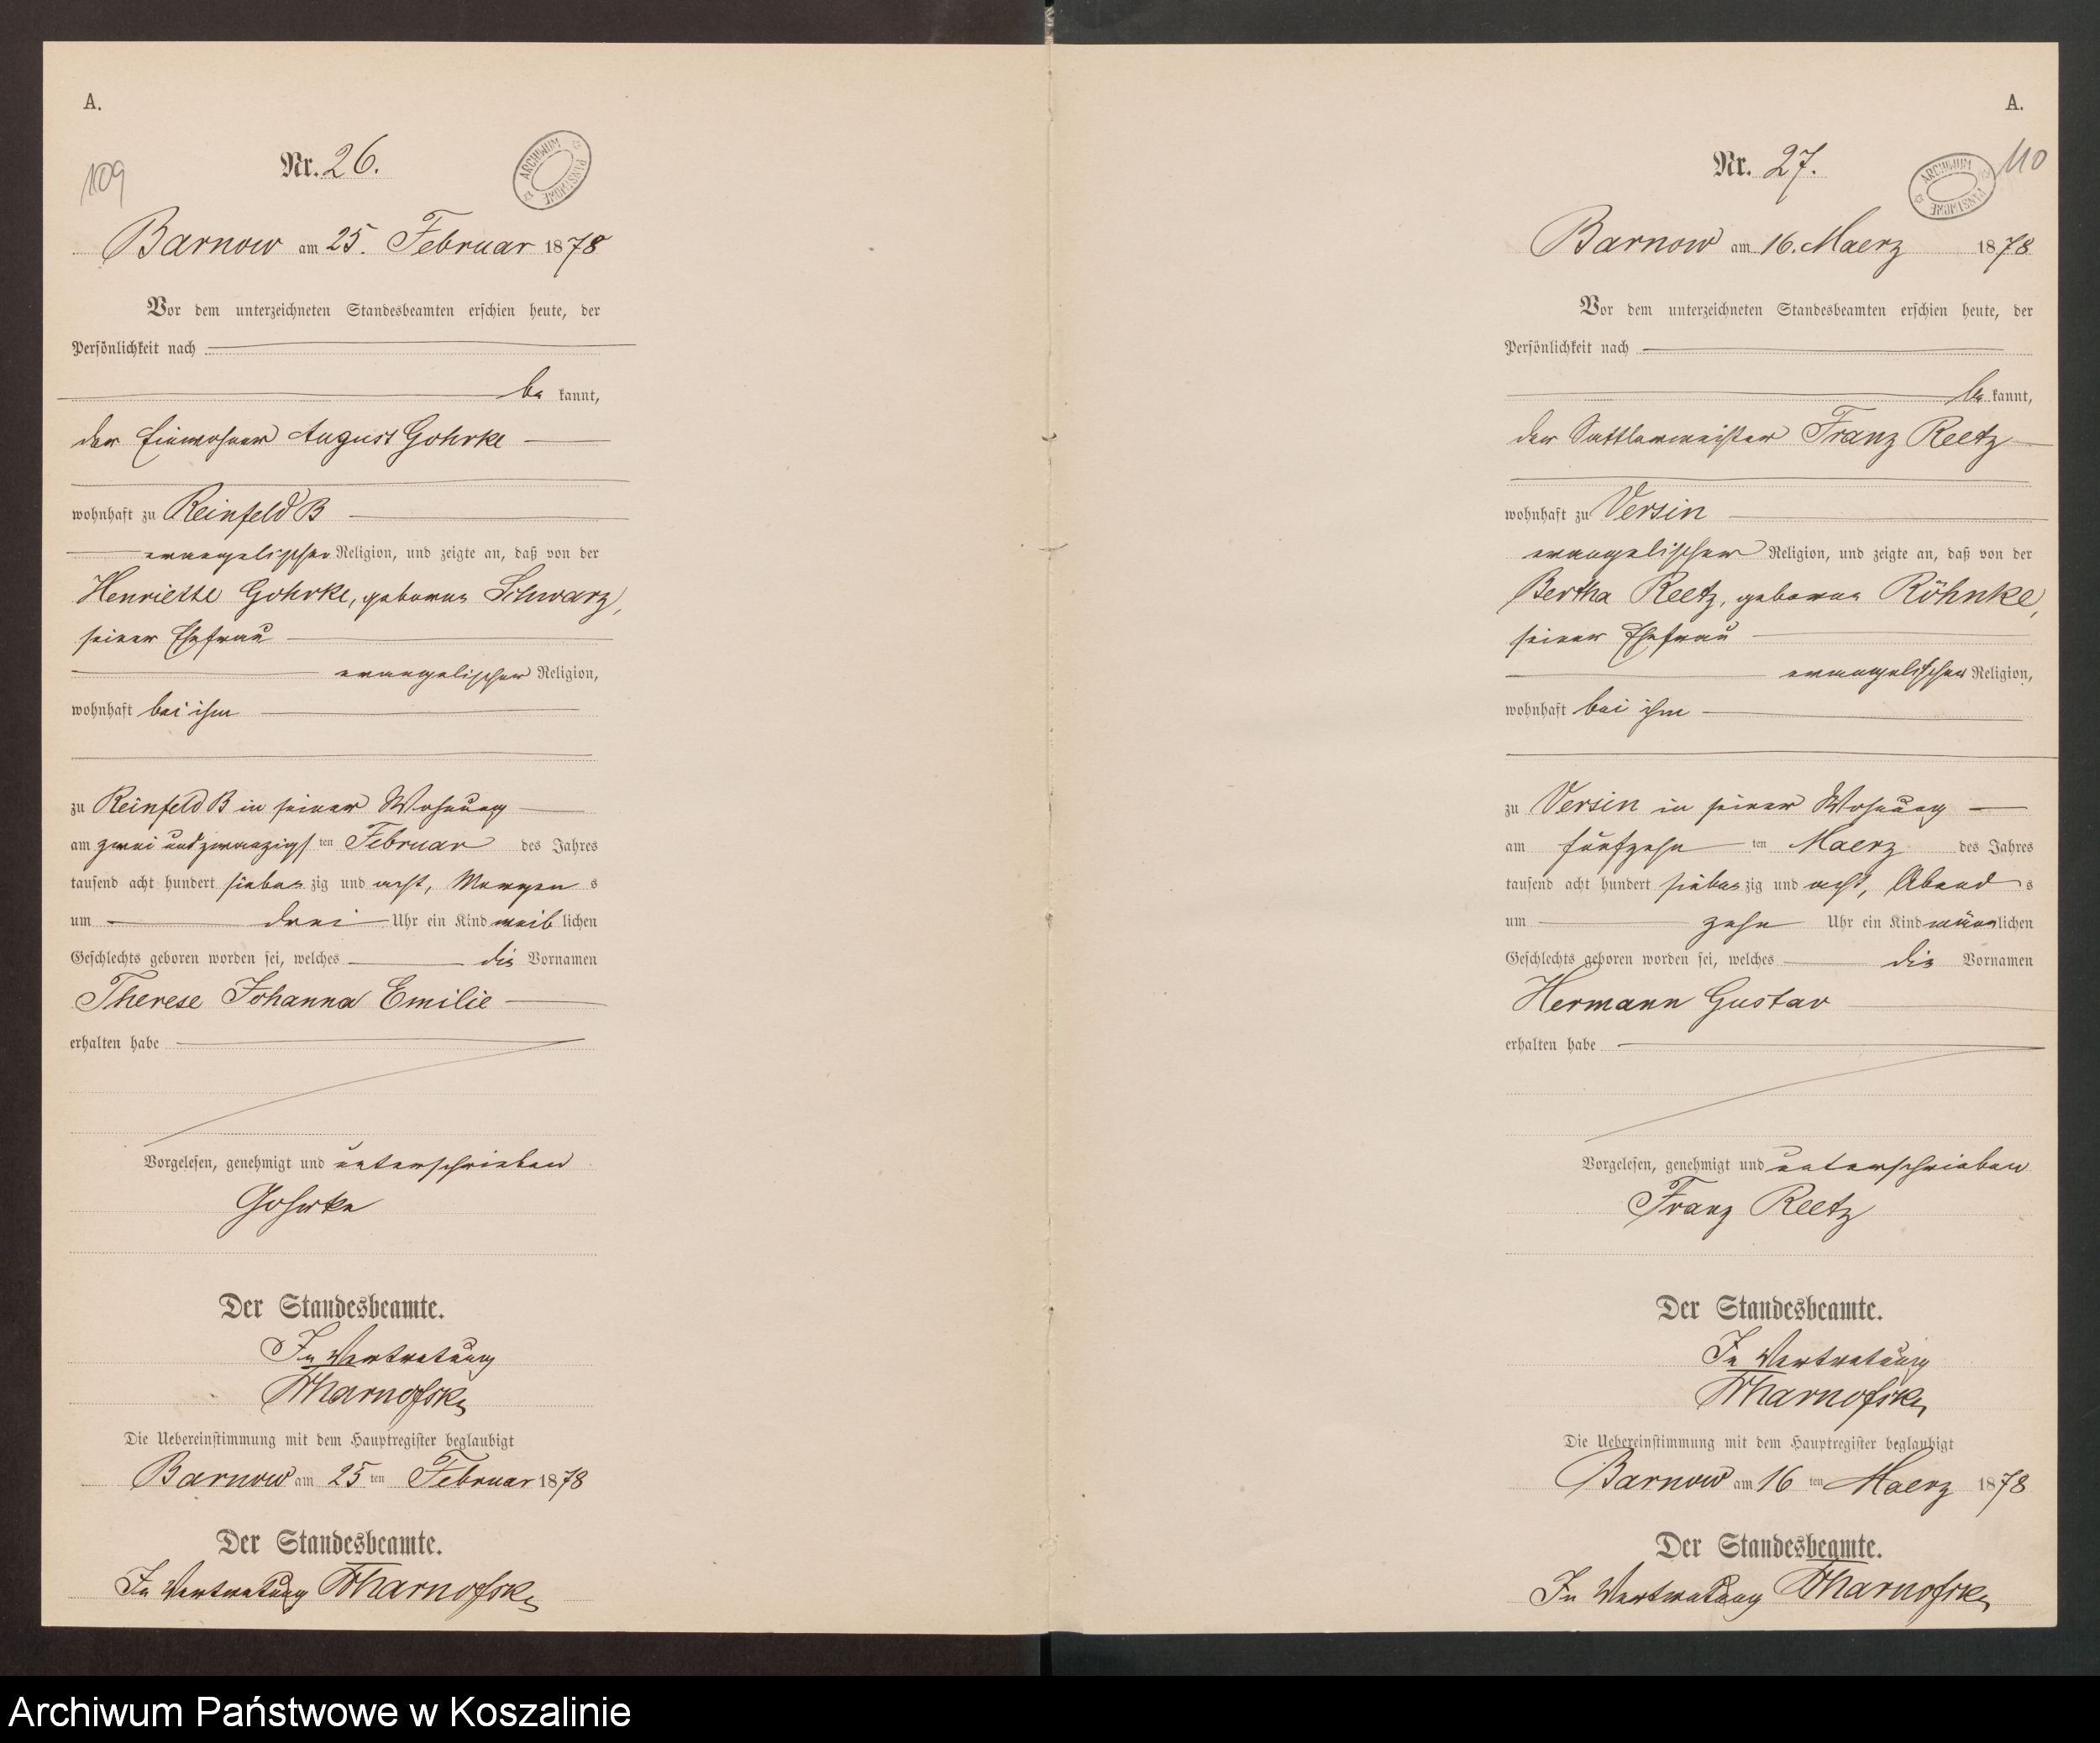 A.
109
Nr. 26.
ARCHIWUM PAŃSTWOWE
Barnow am 25. Februar 1878
Vor dem unterzeichneten Standesbeamten erschien heute, der
Persönlichkeit nach
be kannt,
der Einwohner August Gohrke
wohnhaft zu Reinfeld B
evangelischer Religion, und zeigte an, daß von der
Henriette Gohrke, geborene Schwarz,
seiner Ehefrau
evangelischer Religion,
wohnhaft bei ihm
zu Reinfeld B in seiner Wohnung
am zwei und zwanzigsten Februar des Jahres
tausend acht hundert siebenzig und acht, Morgens
um drei Uhr ein Kind weiblichen
Geschlechts geboren worden sei, welches die Vornamen
Therese Johanna Emilie
erhalten habe
Vorgelesen, genehmigt und unterschrieben
Gohrke
Der Standesbeamte.
In Vertretung
Die Uebereinstimmung mit dem Hauptregister beglaubigt
Barnow am 25ten Februar 1878
Der Standesbeamte.
In Vertretung
A.
110
Nr. 27.
ARCHIWUM PAŃSTWOWE
Barnow am 16. Maerz 1878
Vor dem unterzeichneten Standesbeamten erschien heute, der
Persönlichkeit nach
be kannt,
der Sattlermeister Franz Reetz
wohnhaft zu Versin
evangelischer Religion, und zeigte an, daß von der
Bertha Reetz, geborene Röhnke,
seiner Ehefrau
evangelischer Religion,
wohnhaft bei ihm
zu Versin in seiner Wohnung
am fünfzehnten Maerz des Jahres
tausend acht hundert siebenzig und acht, Abends
um zehn Uhr ein Kind männlichen
Geschlechts geboren worden sei, welches die Vornamen
Hermann Gustav
erhalten habe
Vorgelesen, genehmigt und unterschrieben
Franz Reetz
Der Standesbeamte.
In Vertretung
Die Uebereinstimmung mit dem Hauptregister beglaubigt
Barnow am 16ten Maerz 1878
Der Standesbeamte.
In Vertretung
Archiwum Państwowe w Koszalinie